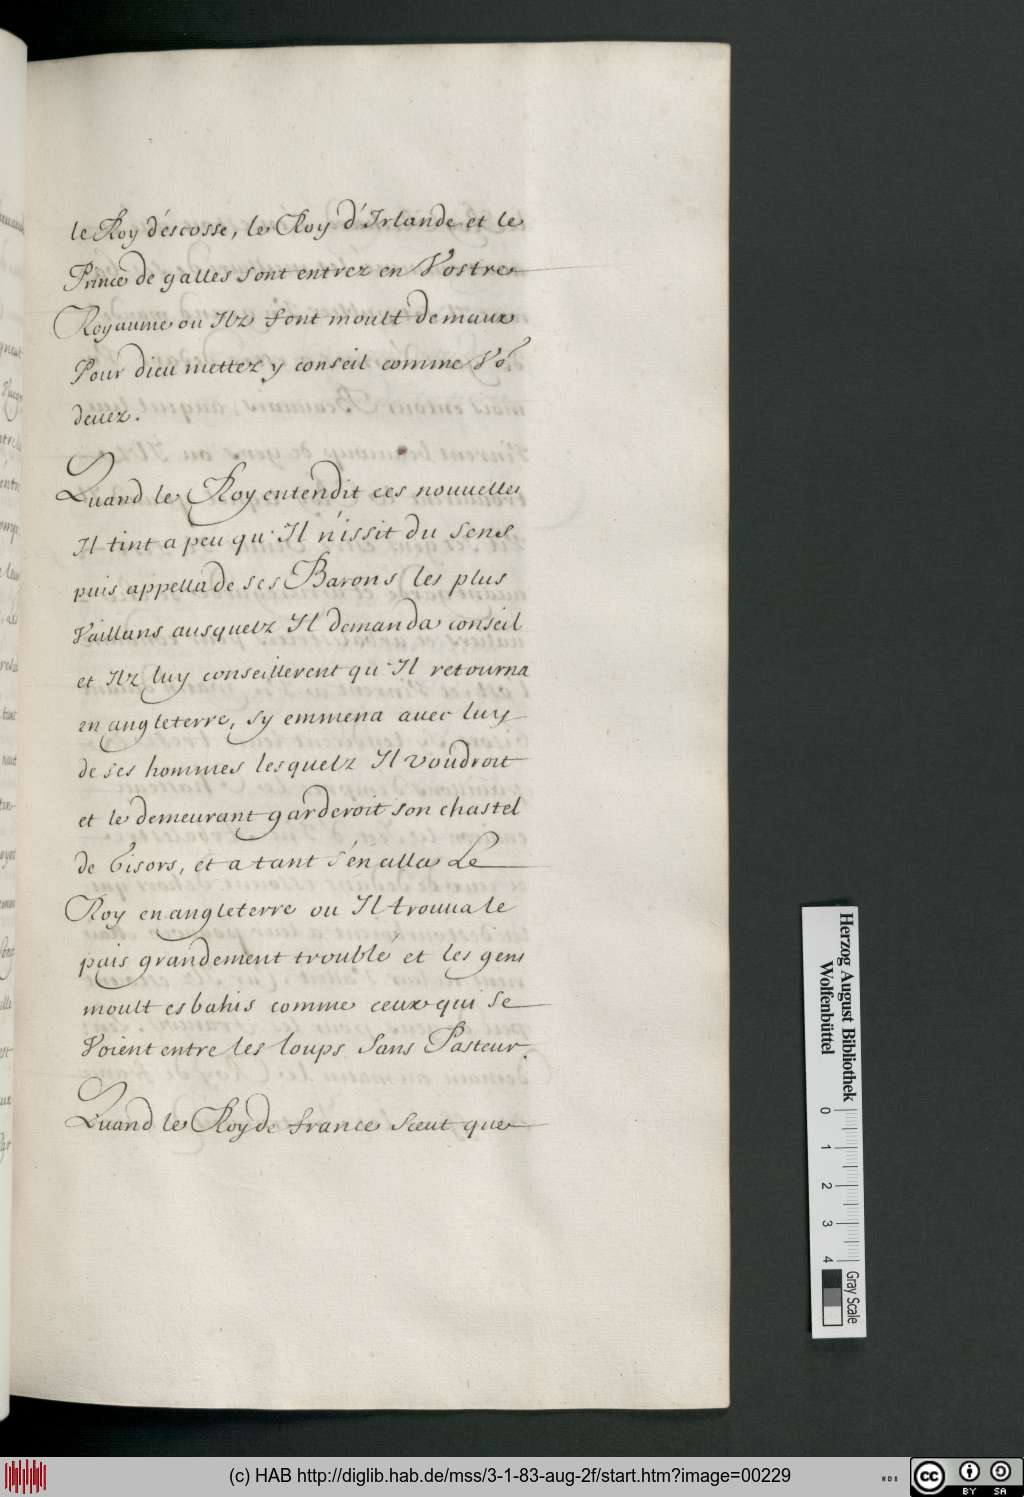 le Roy d'escosse, le Roy d'Irlande et le
Prince de galles sont entrez en Vostre
Royaume ou Ilz font moult de maux
Pour dieu mettez y conseil comme Vo9
deuez.
Quand le Roy entendit ces nouuelles
Il tint a peu qu'Il n'issit du sens
puis appella de ses Barons les plus
Vaillans ausquelz Il demanda conseil
et Ilz luy conseillerent qu'Il retourna
en angleterre, sy emmena auec luy
de ses hommes lesquelz Il voudroit
et le demeurant garderoit son chastel
de Gisors, et a tant s'en alla Le
Roy en angleterre ou Il trouua le
pais grandement troublé et les gens
moult esbahis comme ceux qui se
Voient entre les loups sans Pasteur.
Quand le Roy de france sceut que
Herzog August Bibliothek
Wolfenbüttel
0 1 2 3 4
Gray Scale
(c) HAB http://diglib.hab.de/mss/3-1-83-aug-2f/start.htm?image=00229
WDB
cc BY SA